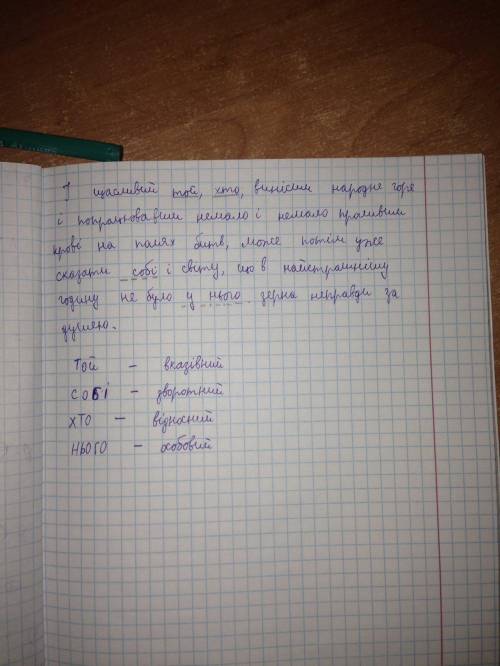 І щасливий той, хто, винісши народне горе
і попрацювавши немало і немало проливши
крові на полях битв, може потім уже
сказати собі і світу, що в найстрашнішу
годину не було у нього зерна неправди за
душею.
той – вказівний
собі – зворотний
хто – відносний
нього – особовий